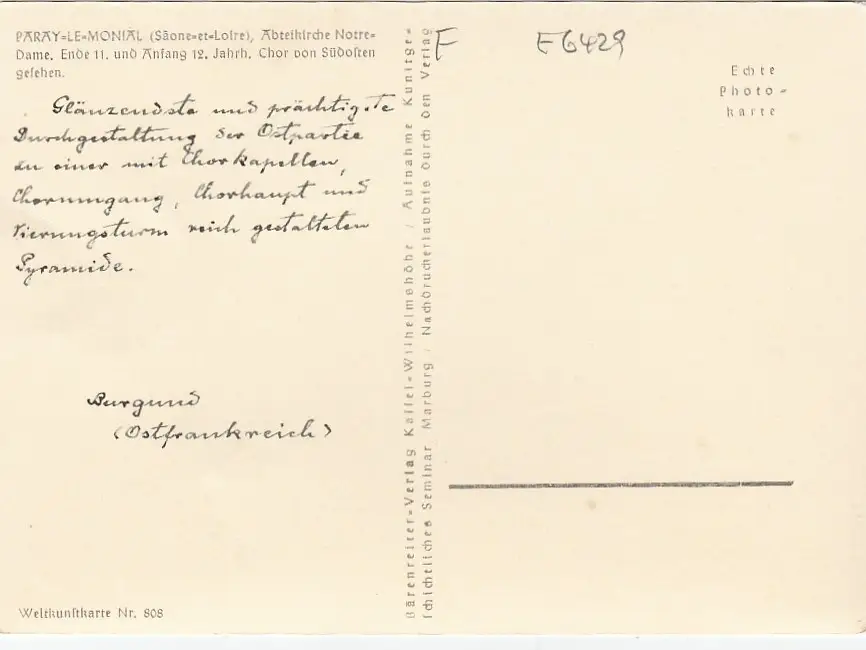 PARAY-LE-MONIAL (Sâone-et-Loire), Abteikirche Notre-
Dame. Ende 11. und Anfang 12. Jahrh. Chor von Südosten
gesehen.
Glänzendste und prächtigste
Durchgestaltung der Ostpartie
zu einer mit Chorkapellen,
Chorumgang, Chorhaupt und
Vierungsturm reich gestalteten
Pyramide.
Burgund
(Ostfrankreich)
Weltkunstkarte Nr. 808
Bärenreiter-Verlag Kassel-Wilhelmshöhe / Aufnahme Kunstge-
schichtliches Seminar Marburg / Nachdruckerlaubnis durch den Verlag
F
F6429
Echte
Photo-
karte